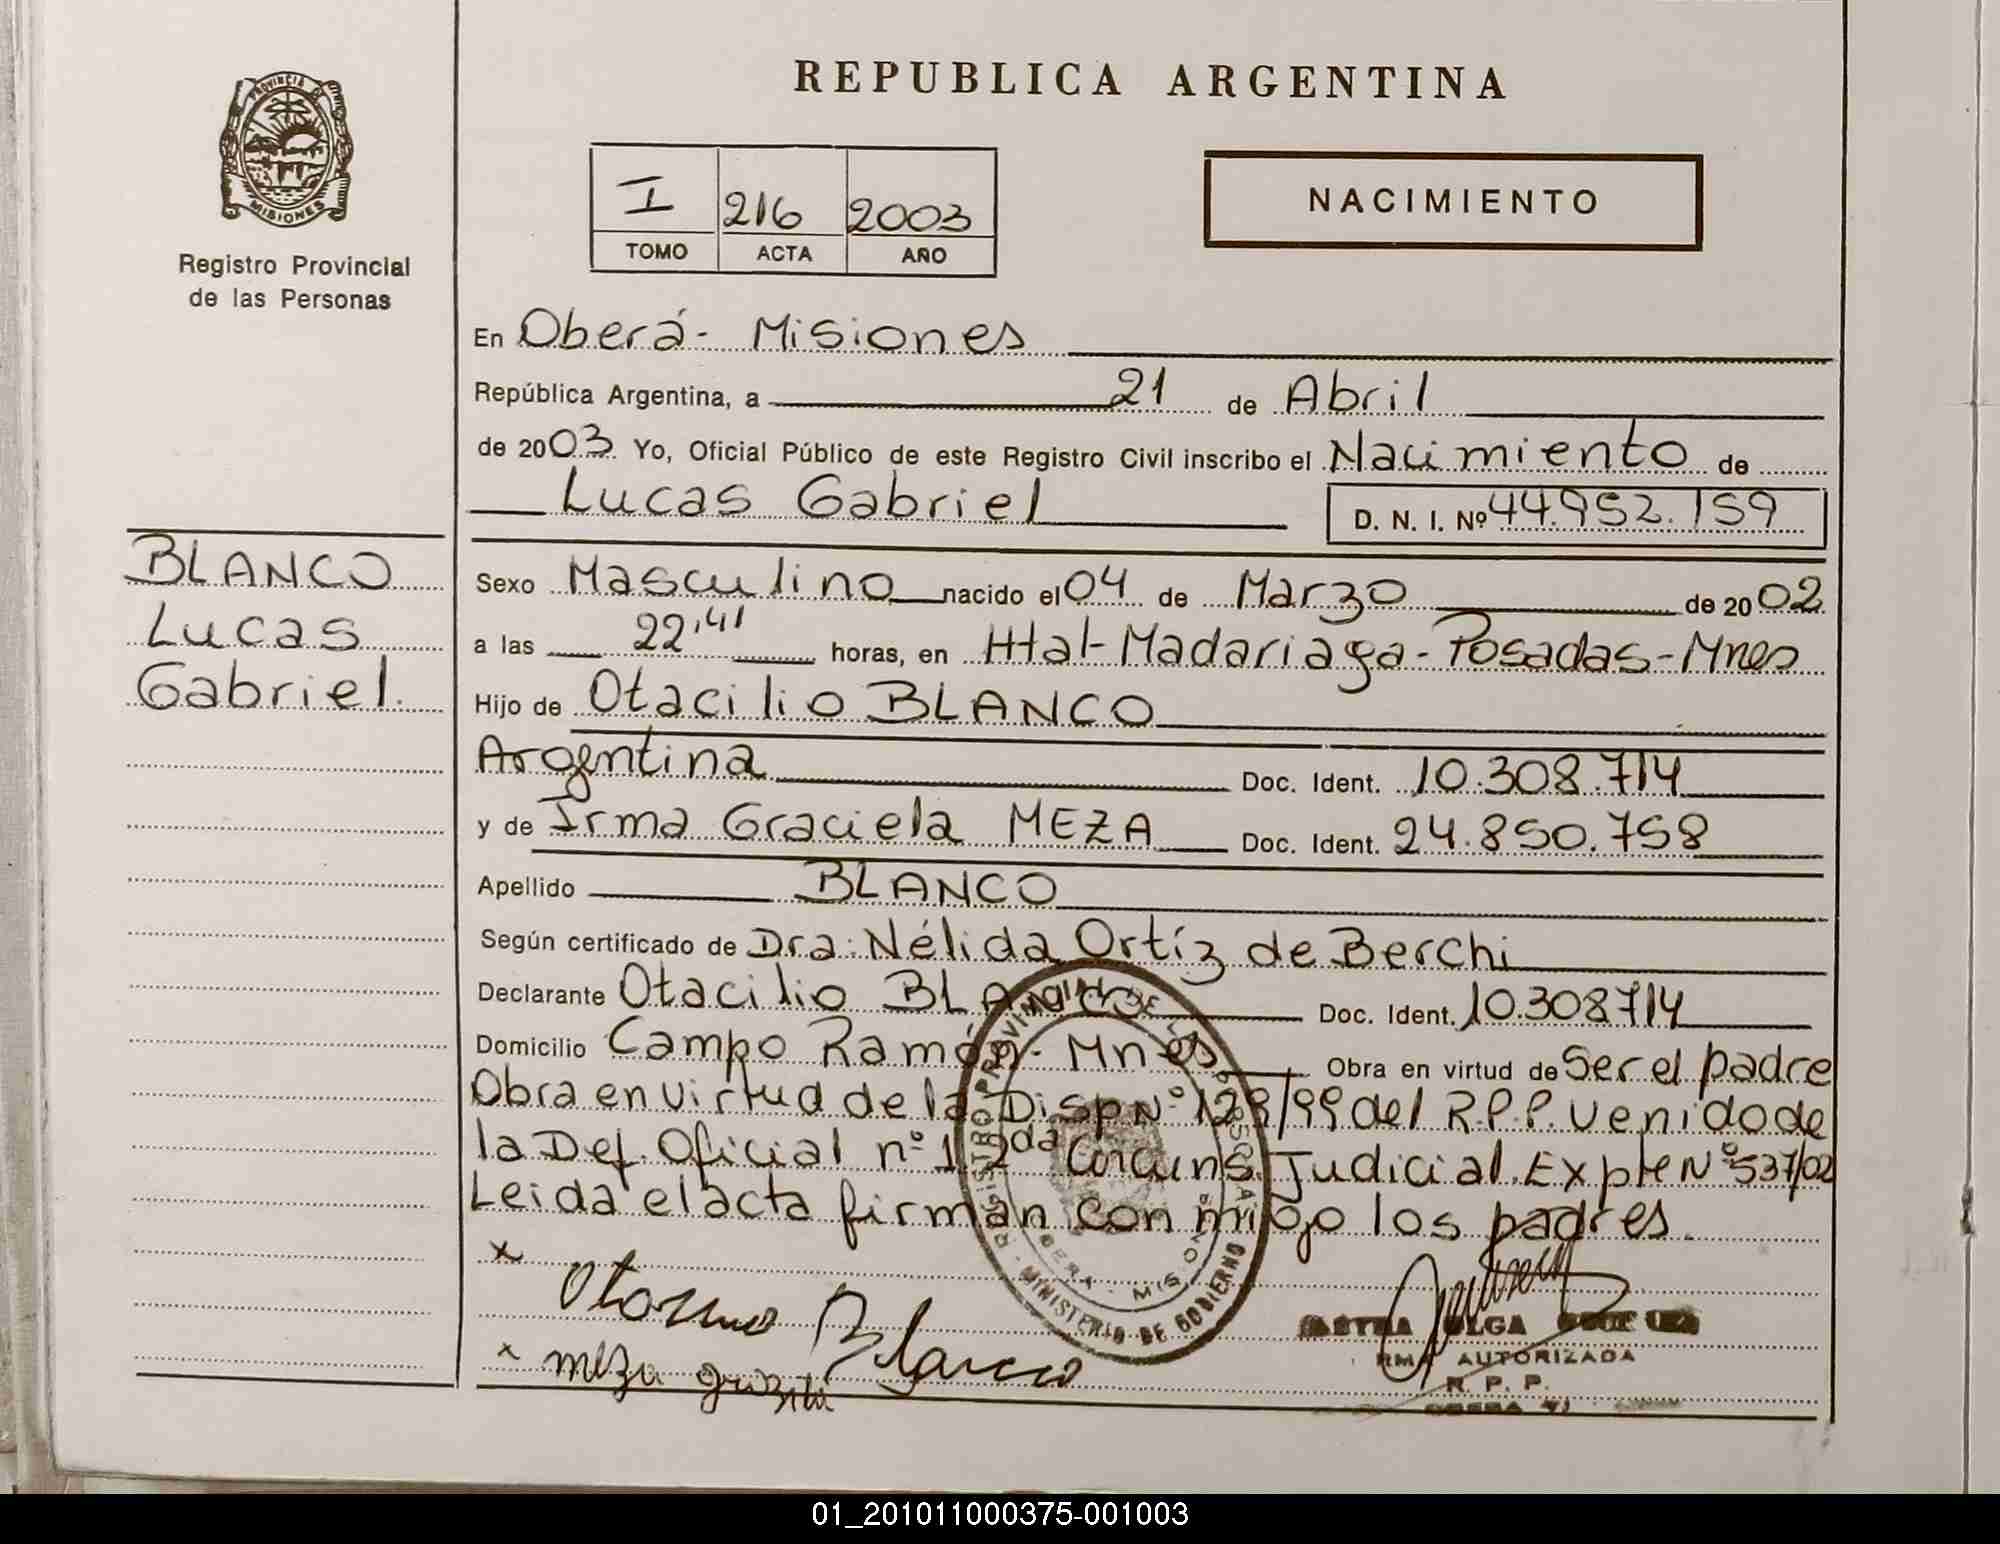 REPUBLICA ARGENTINA
PROVINCIA DE
MISIONES
Registro Provincial
de las Personas
I 216 2003
TOMO ACTA AÑO
NACIMIENTO
En Oberá- Misiones
República Argentina, a 21 de Abril
de 2003 Yo, Oficial Público de este Registro Civil inscribo el Nacimiento de
Lucas Gabriel D. N. I. Nº 44.952.159
BLANCO
Lucas
Gabriel.
Sexo Masculino nacido el 04 de Marzo de 2002
a las 22,41 horas, en Htal-Madariaga-Posadas-Mnes
Hijo de Otacilio BLANCO
Argentina Doc. Ident. 10.308.714
y de Irma Graciela MEZA Doc. Ident. 24.850.758
Apellido BLANCO
Según certificado de Dra. Nélida Ortíz de Berchi
Declarante Otacilio BLANCO Doc. Ident. 10.308714
Domicilio Campo Ramón- Mnes Obra en virtud de Ser el padre
Obra en virtud de la Disp Nº 129/99 del R.P.P. venido de
la Def. Oficial nº 1 2da Circuns. Judicial. Expte Nº 537/02
Leida el acta firman con migo los padres.
x Blanco
x meza
OLGA
AUTORIZADA
R. P. P.
MINISTERIO DE GOBIERNO
01_201011000375-001003